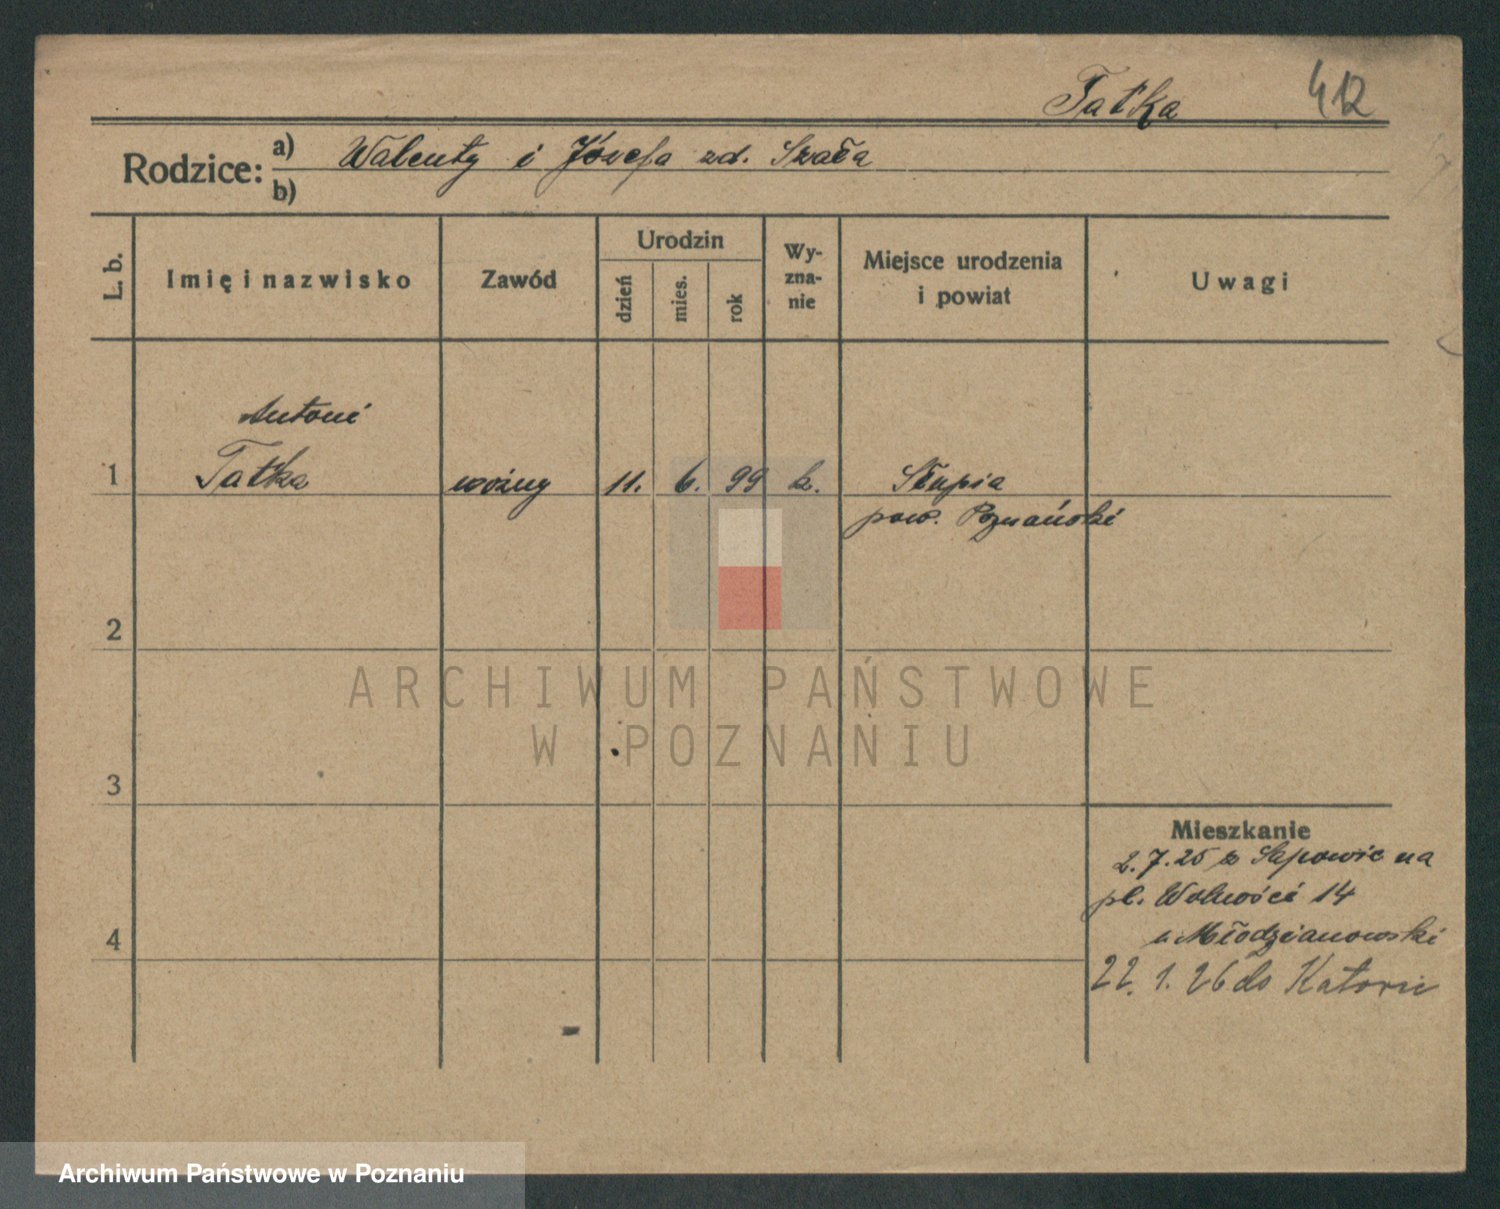 Tatka 412
Rodzice: a) Walenty i Józefa zd. Szała
b)
L. b. Imię i nazwisko Zawód Urodzin dzień mies. rok Wy-zna-nie Miejsce urodzenia i powiat Uwagi
Antoni
1 Tatka woźny 11. 6. 99 k. Słupia
pow. Poznański
2
ARCHIWUM PAŃSTWOWE
W POZNANIU
3
Mieszkanie
2.7.25 z Sapowic na
pl. Wolności 14
u Młodzianowski
4
22. 1. 26 do
Archiwum Państwowe w Poznaniu